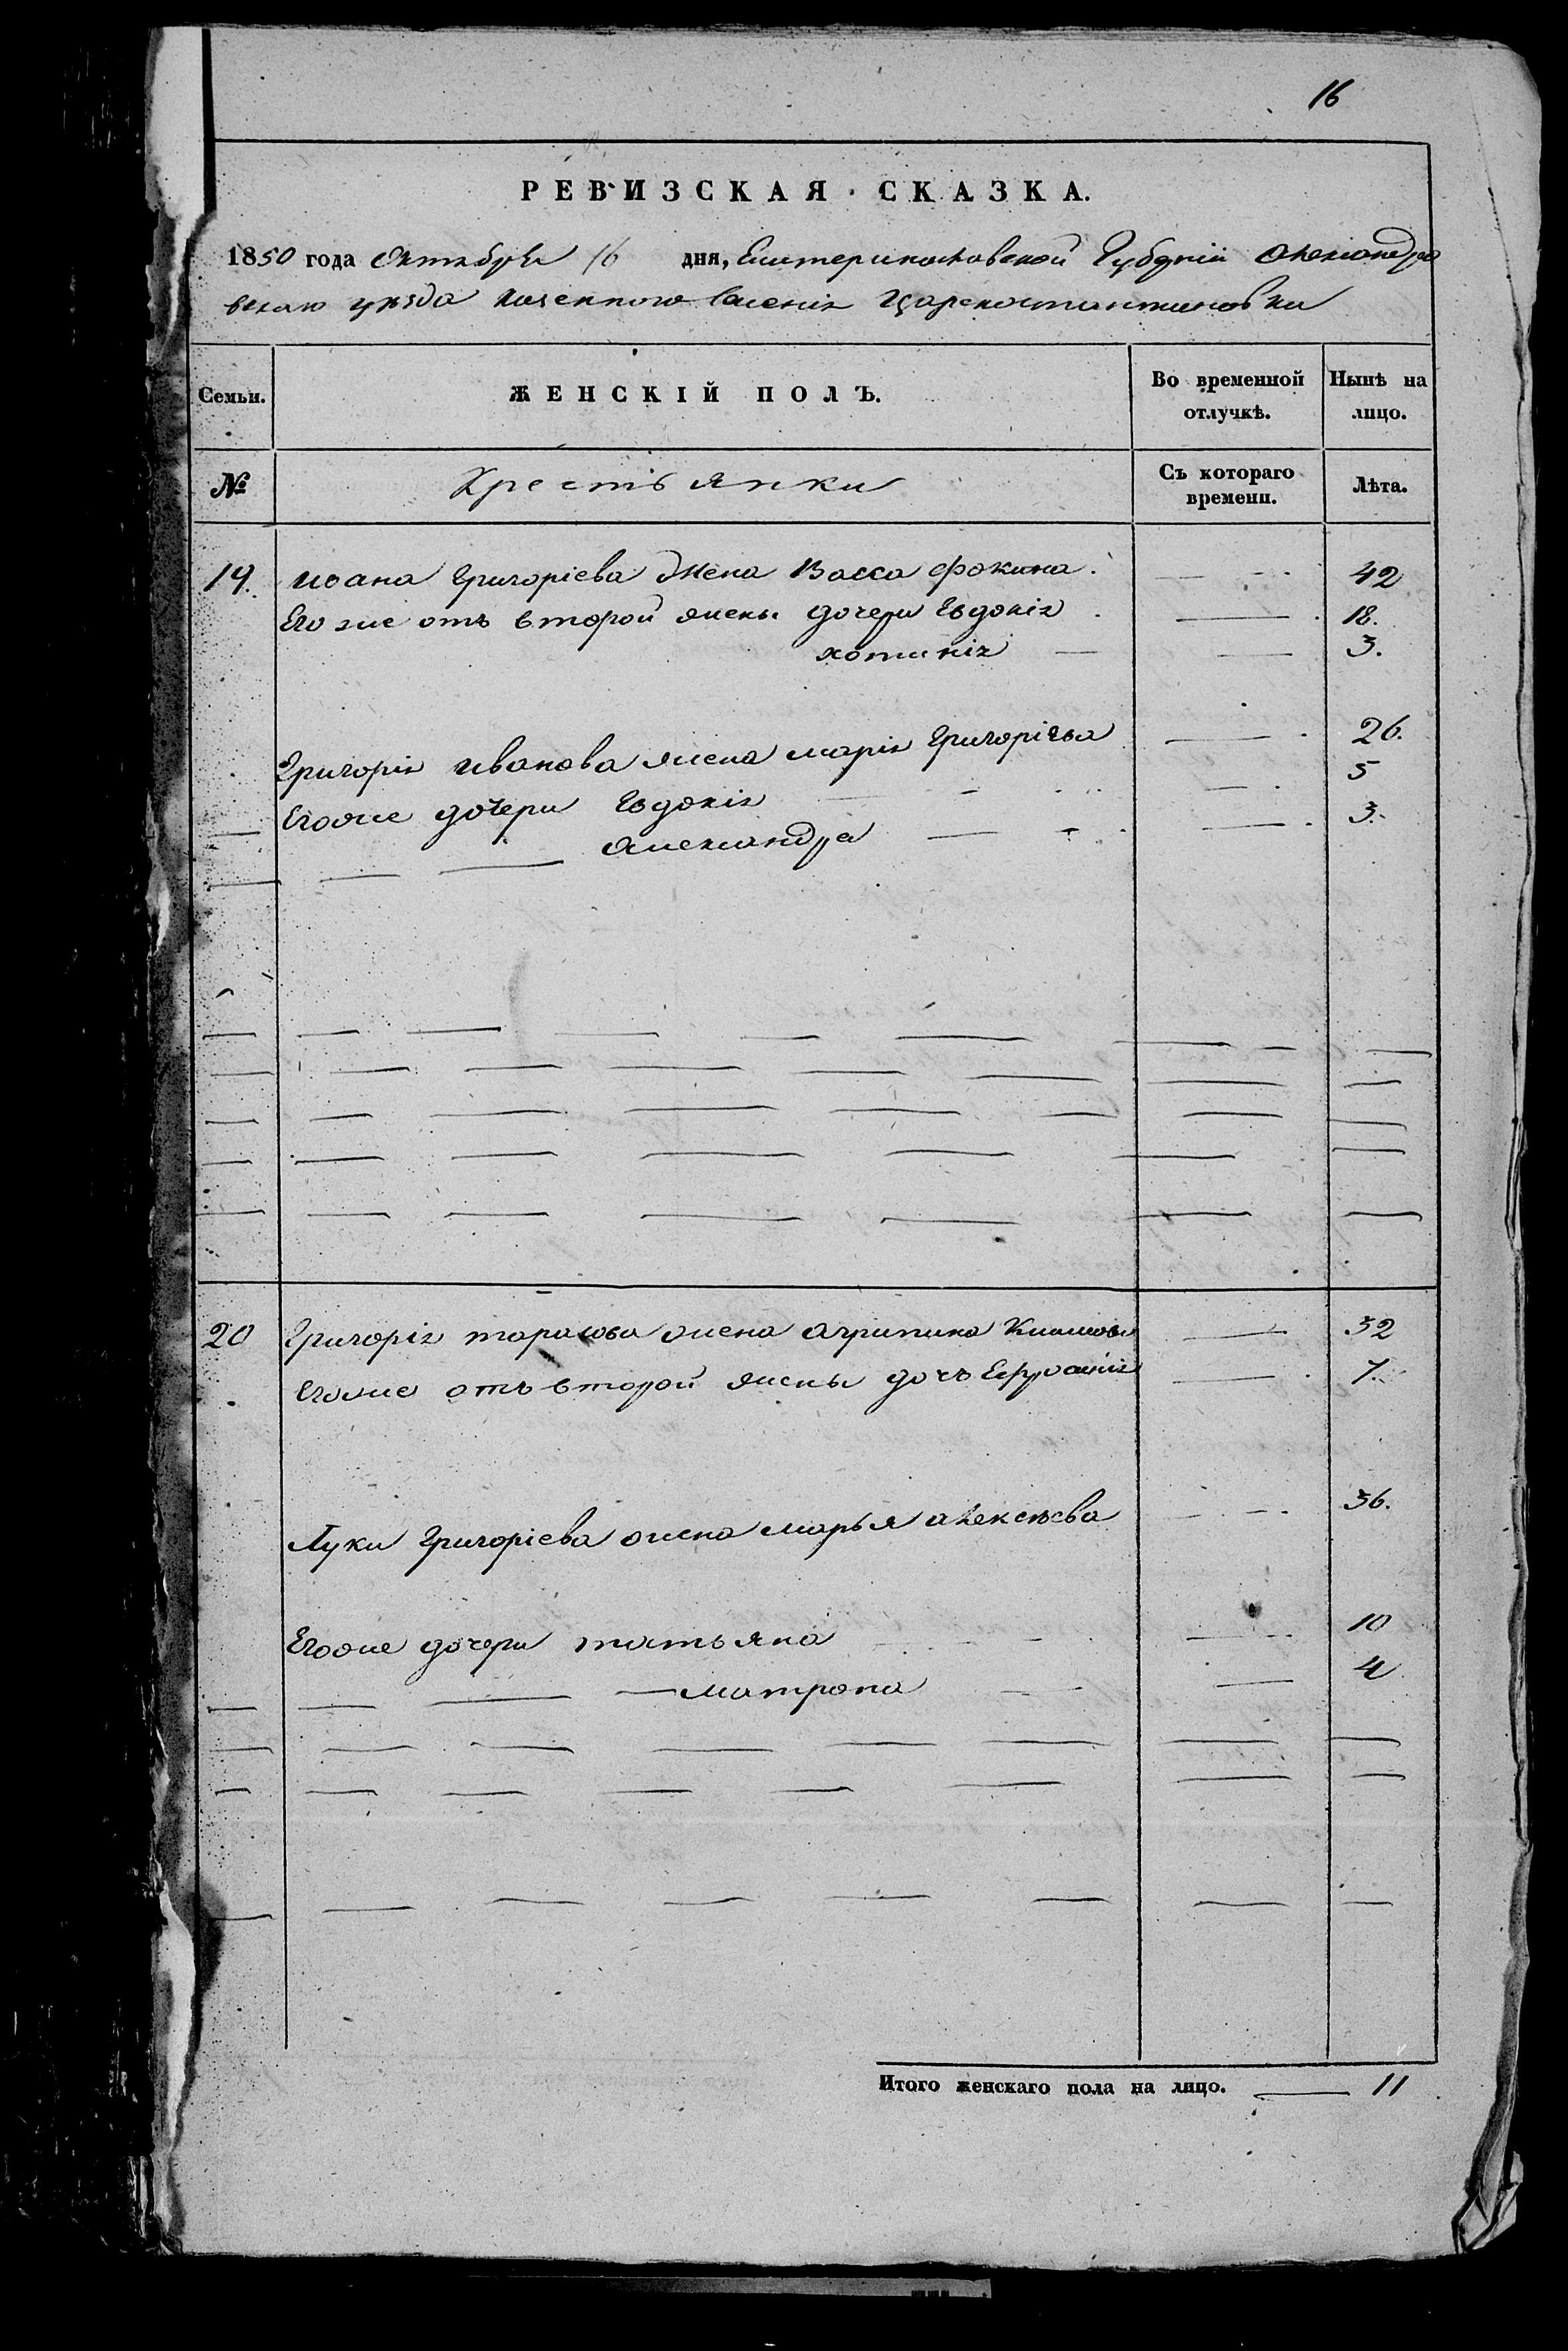 16
РЕВИЗСКАЯ СКАЗКА.
1850 года Октября 16 дня, Екатеринославской Губернiи Александро
вскаго уѣзда казенного селенiя Царекостантиновки
Семьи.
ЖЕНСКIЙ ПОЛЪ.
Во временной отлучкѣ.
Нынѣ на лицо.
№
Крестьянки
Съ котораго времени.
Лѣта.
19. Ивана Григорiева жена Васса Фокина. 42
Его же отъ второй жены дочери Евдокiя 18.
хотинiя 3.
Григорiя Иванова жена марiя Григорiева 26.
Егоже дочери Евдокiя 5
Александра 3.
20 Григорiя тарасова жена агрипина Климова 52
Егоже отъ второй жены дочь Ефросинiя 7.
Луки Григорiева жена марья алексѣева 36.
Егоже дочери татьяна 10
матрона 4
Итого женскаго пола на лицо. 11